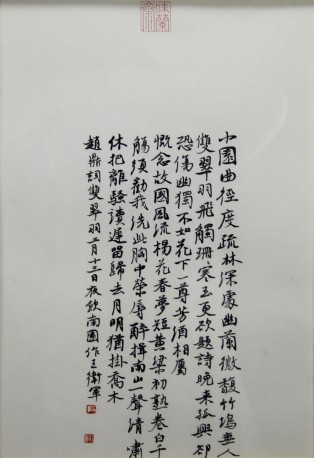 小園曲徑度疏林深處幽蘭微馥竹塢無人
雙翠羽飛觸珊寒玉更欲題詩晚來孤興却
恐傷幽獨不如花下一尊芳酒相屬
慨念故國風流楊花春夢短黄粱初熟卷白千
觴須勸我洗此胸中榮辱醉揖南山一聲清嘯
休把離騷讀遲留歸去月明猶掛喬木
趙鼎詞雙翠羽三月十三日夜飲南園作王衛軍